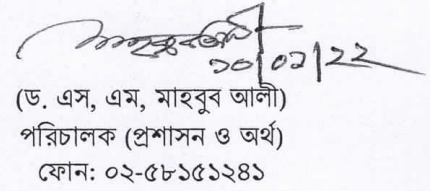 ১০/০২/২২
(ড. এস, এম, মাহবুব আলী)
পরিচালক (প্রশাসন ও অর্থ)
ফোন: ০২-৫৮১৫১২৪১